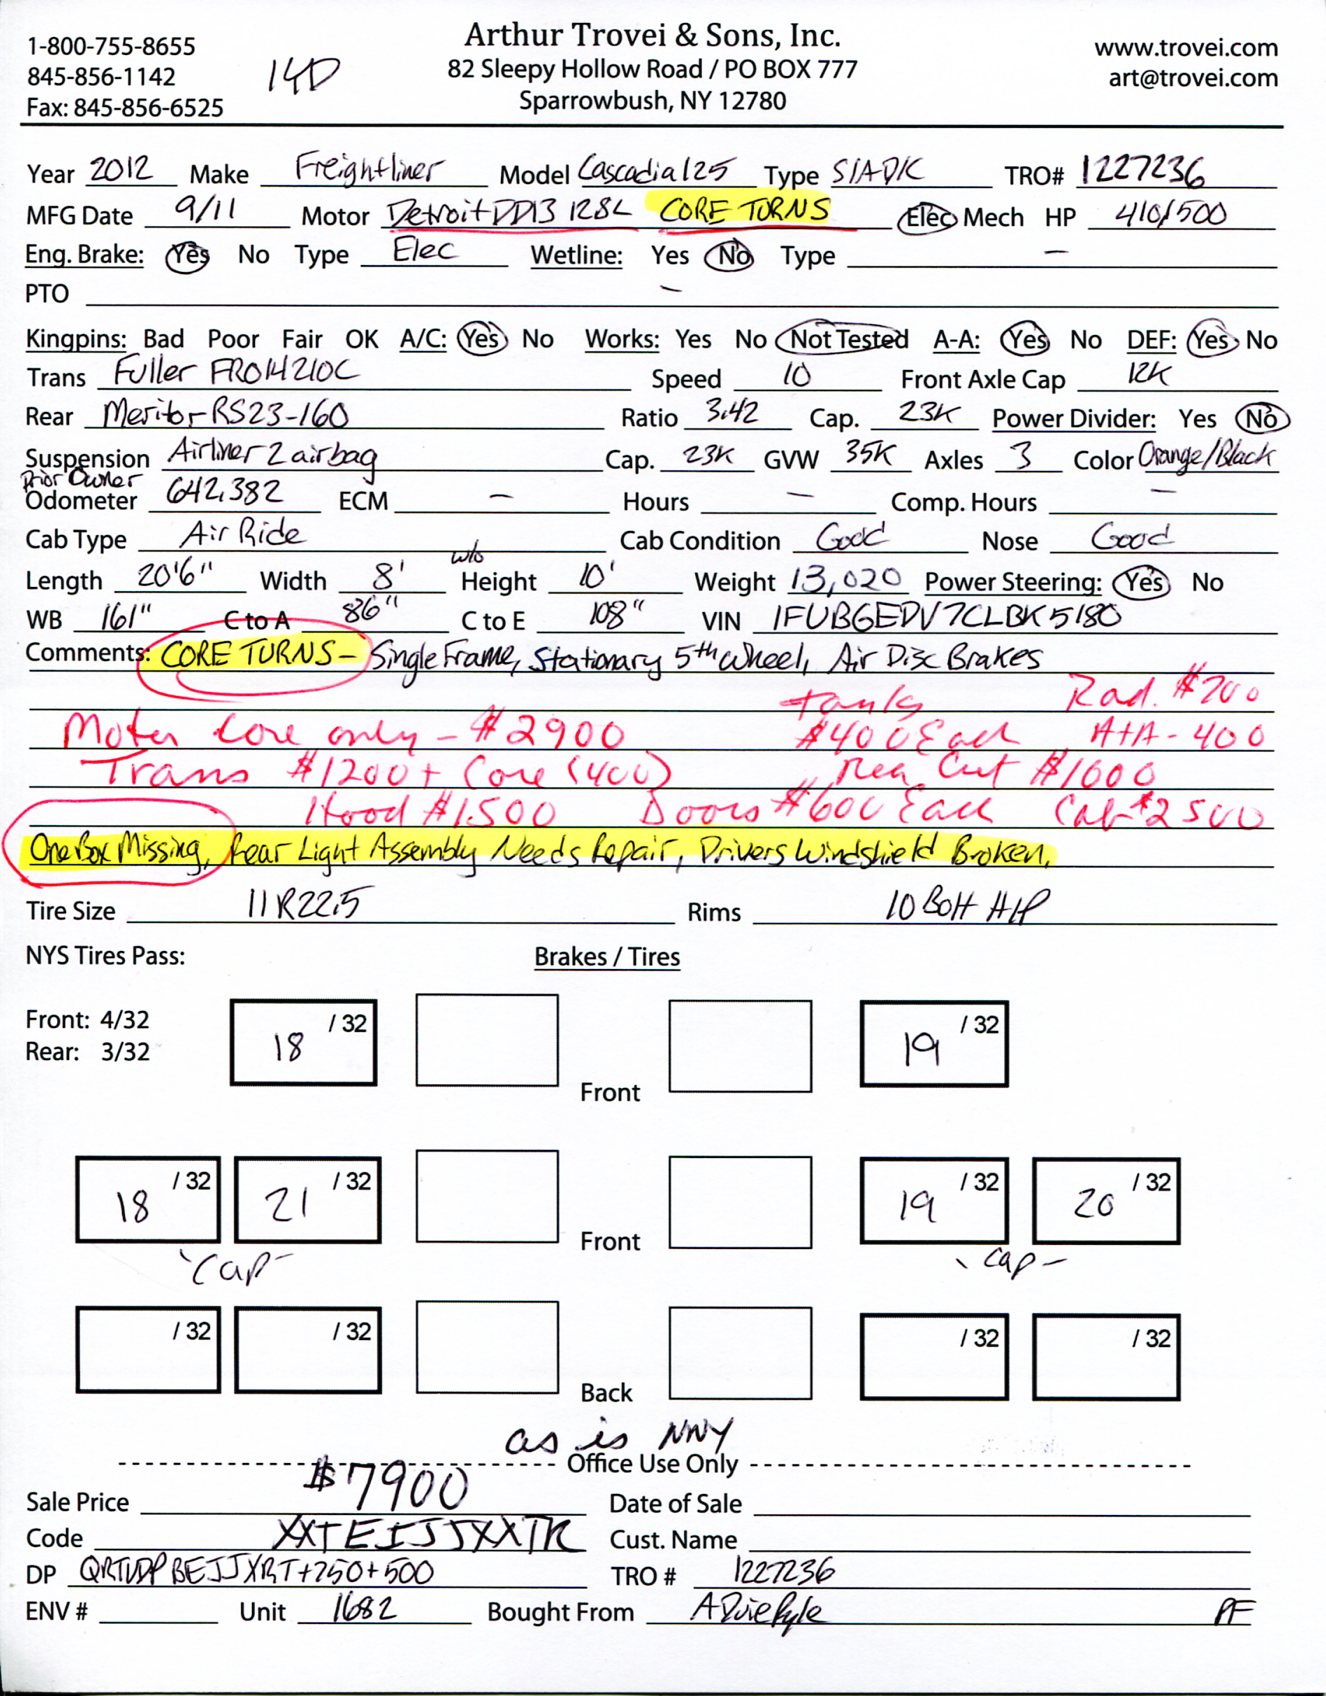 1-800-755-8655
845-856-1142
Fax: 845-856-6525
14D
Arthur Trovei & Sons, Inc.
82 Sleepy Hollow Road / PO BOX 777
Sparrowbush, NY 12780
www.trovei.com
art@trovei.com
Year 2012 Make Freightliner Model Cascadia 125 Type S/A DK TRO# 1227236
MFG Date 9/11 Motor Detroit DD13 12.8L CORE TURNS Elec Mech HP 410/500
Eng. Brake: Yes No Type Elec Wetline: Yes No Type —
PTO —
Kingpins: Bad Poor Fair OK A/C: Yes No Works: Yes No Not Tested A-A: Yes No DEF: Yes No
Trans Fuller FRO14210C Speed 10 Front Axle Cap 12K
Rear Meritor RS23-160 Ratio 3.42 Cap. 23K Power Divider: Yes No
Suspension Airliner 2 airbag Cap. 23K GVW 35K Axles 3 Color Orange/Black
Prior Owner
Odometer 642,382 ECM — Hours — Comp. Hours —
Cab Type Air Ride Cab Condition Good Nose Good
Length 20'6" Width 8' w/o Height 10' Weight 13,020 Power Steering: Yes No
WB 161" C to A 86" C to E 108" VIN 1FUBGEDV7CLBK5180
Comments: CORE TURNS - Single Frame, Stationary 5th Wheel, Air Disc Brakes
Tanks Rad. $700
Motor Core only - $2900 $400 Each A+A - 400
Trans $1200 + Core (400) Rea Cut $1600
Hood $1500 Doors $600 Each Cab $2500
One Box Missing, Rear Light Assembly Needs Repair, Drivers Windshield Broken.
Tire Size 11R22.5 Rims 10 Bolt H/P
NYS Tires Pass: Brakes / Tires
Front: 4/32
Rear: 3/32
18 /32 19 /32
Front
18 /32 21 /32 19 /32 20 /32
Front
-Cap- -Cap-
/32 /32 /32 /32
Back
as is NNY
Office Use Only
Sale Price $7900 Date of Sale
Code XXTEIJJXXTR Cust. Name
DP QRTVDPBEJJXRT+250+500 TRO # 1227236
ENV # Unit 1682 Bought From A Duie Pyle PF